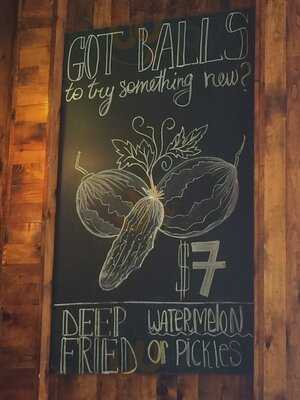 GOT BALLS
to try something new?
$7
DEEP WATERMELON
FRIED or PICKLES